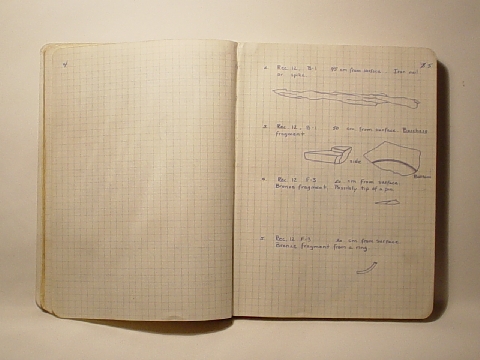 Rec 12. B-1 cm from surface. Iron nail
or spike.
Rec. 12 B-1 50 cm from surface. Basebase
fragment.
side
Bottom
Rec 12 F-3 20 cm from surface.
Bronze fragment. Possibly tip of a pin.
Rec 12 F-3 20 cm from surface.
Bronze fragment from a ring.